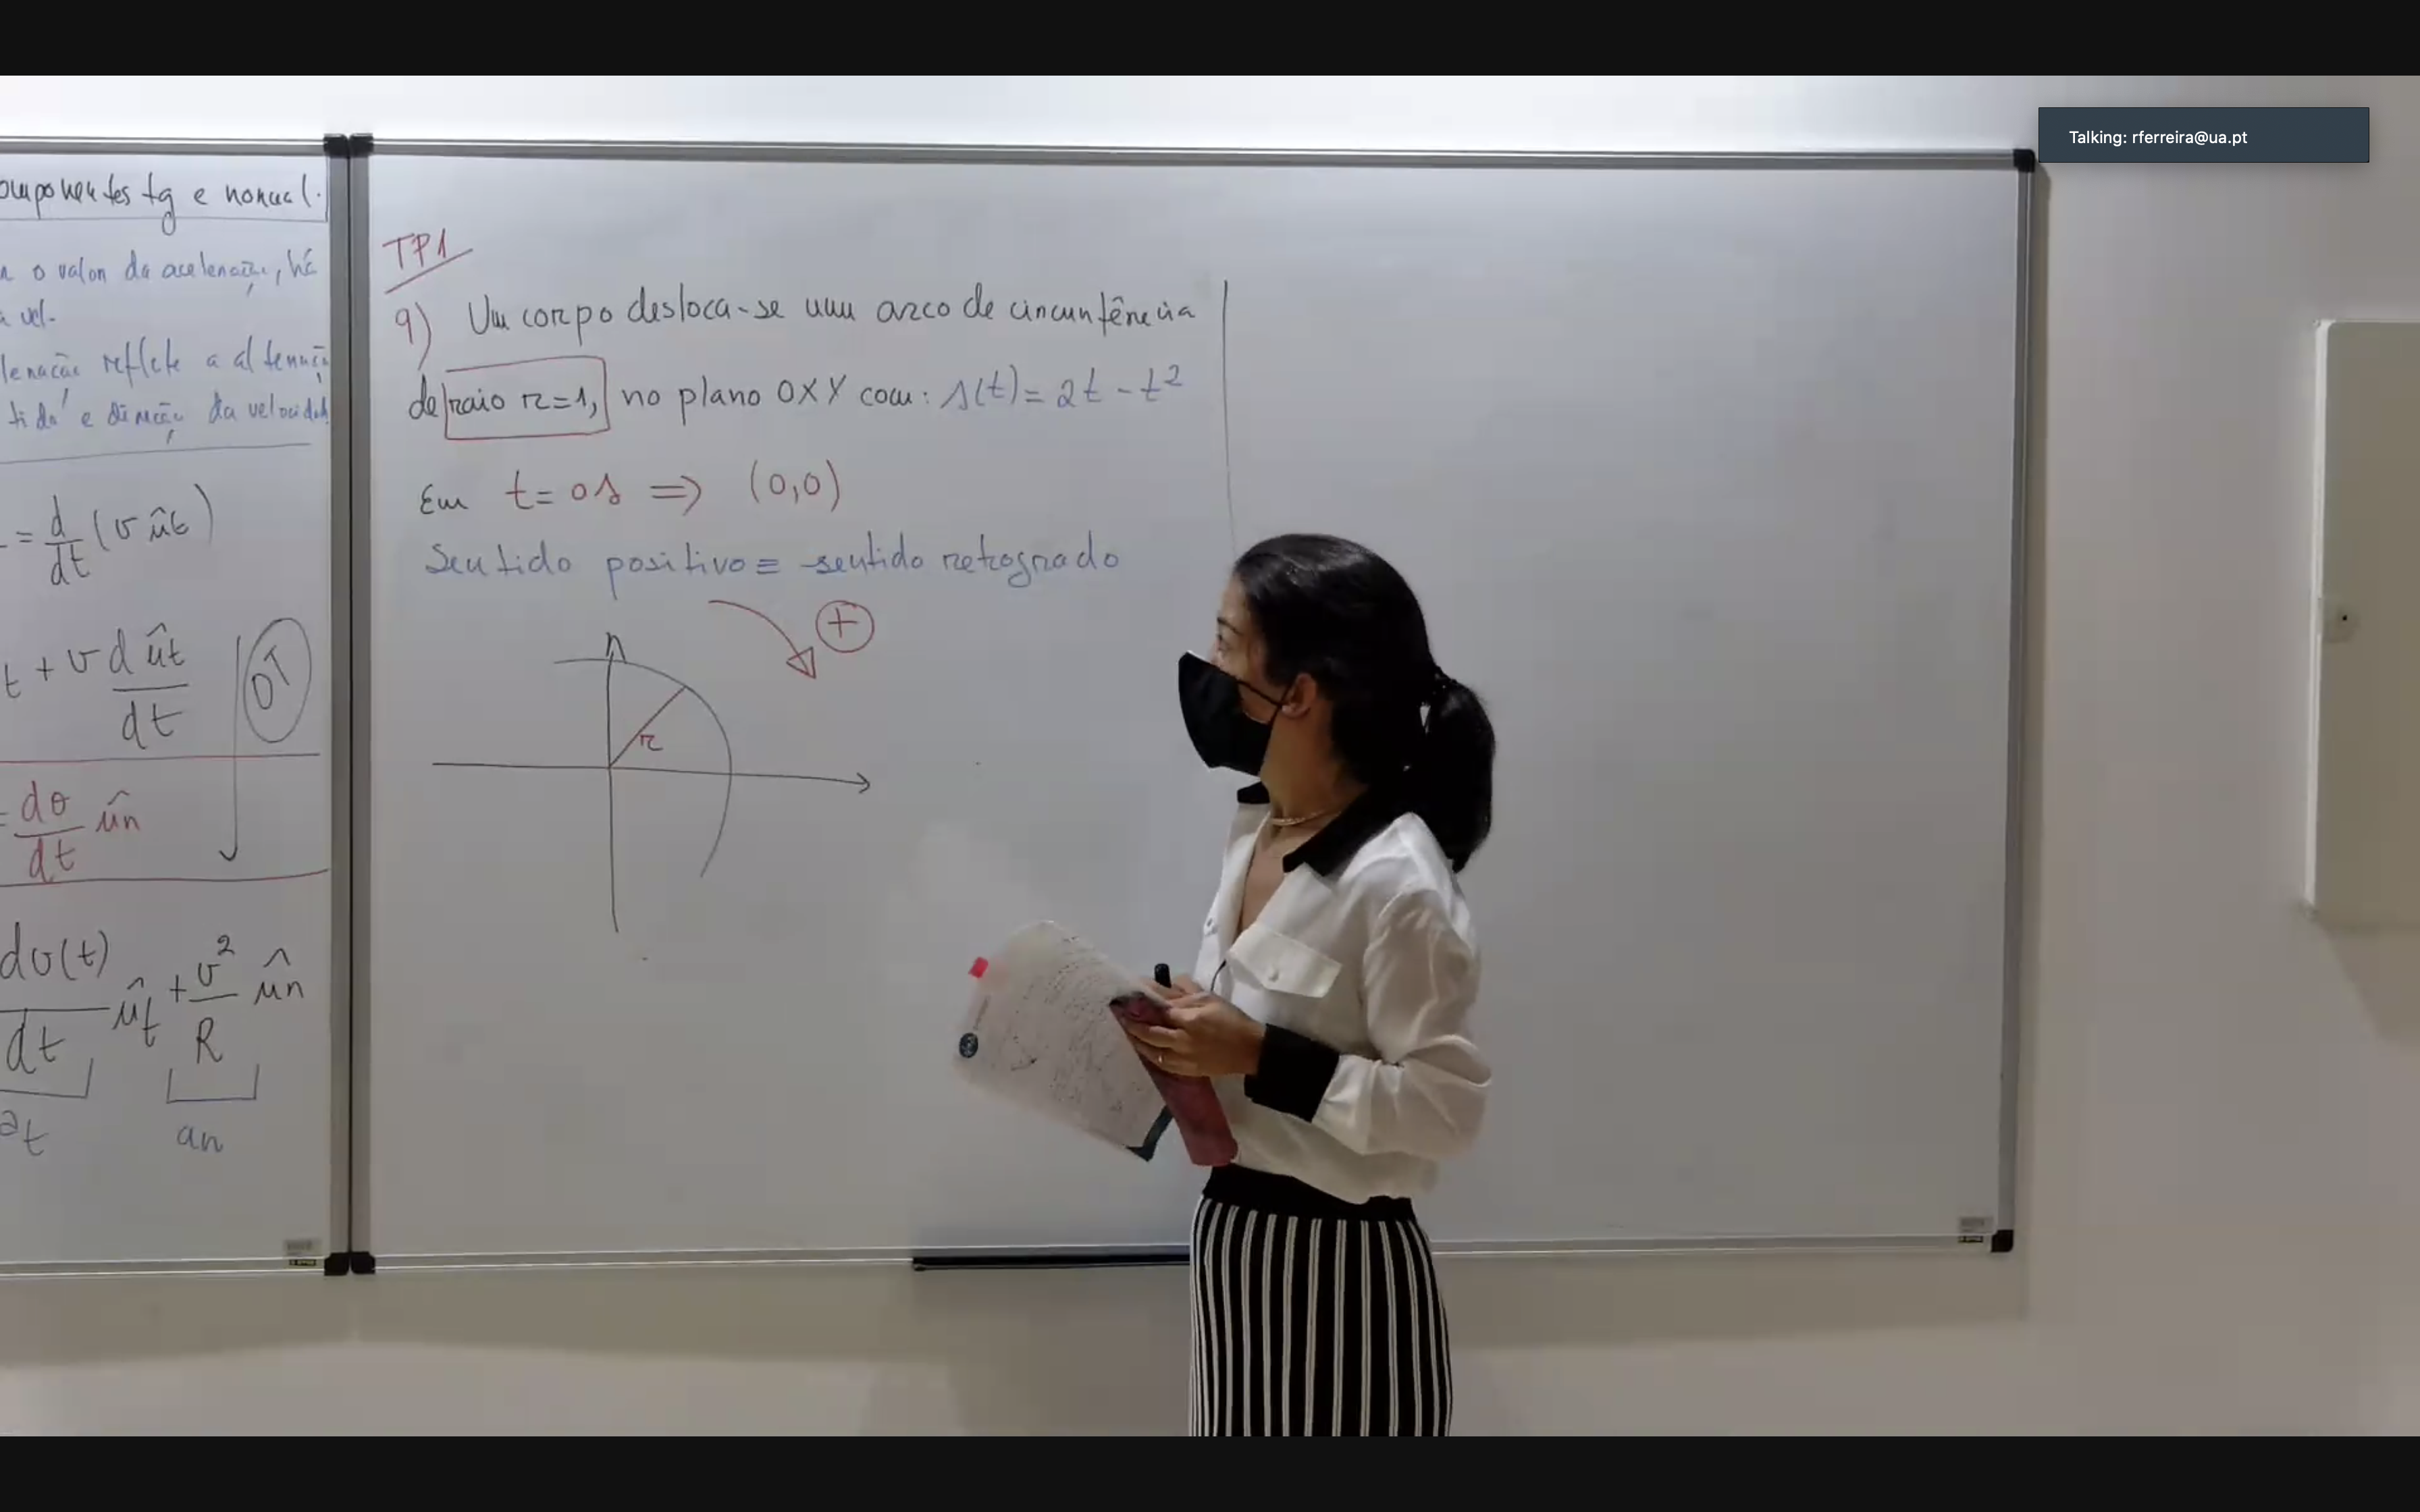 Talking: rferreira@ua.pt
componentes tg e normal.
o valor da aceleração, há
a vel.
reflete a
e direção da velocidad
= d/dt (v ût)
t + v dût/dt
DT
= dθ/dt ûn
dv(t)/dt ût + v²/R ûn
at an
TP1
9) Um corpo desloca-se num arco de circunferência
de raio r=1, no plano OXY com: s(t) = 2t - t²
Em t= 0s ⇒ (0,0)
Sentido positivo ≡ sentido retrogrado
+
r